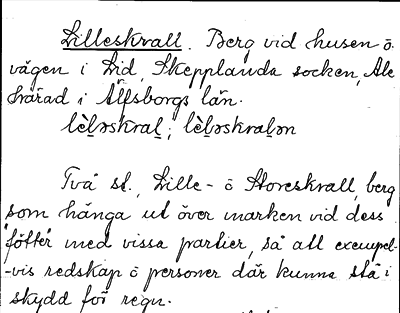 Lilleskrall. Berg vid husen ö.
vägen i Lid, Skepplanda socken, Ale
härad i Älfsborgs län.
lèl̯əskral̯; lèl̯əskral̯ən
Två st., Lille- o Storeskrall, berg
som hänga ut över marken vid dess
"fötter" med vissa partier, så att exempel-
-vis redskap o personer där kunna stå i
skydd för regn.